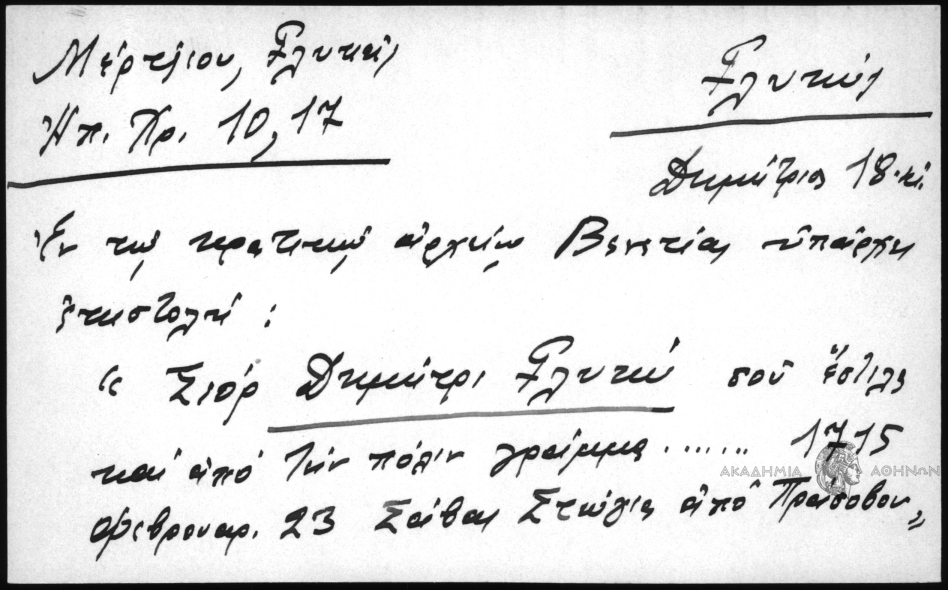 Μέρτζιου, Γλυκεῖς
Ἠπ. Χρ. 10, 17
Γλυκύς
Δημήτριος 18. αἰ.
Ἐν τῷ κρατικῷ ἀρχείῳ Βενετίας ὑπάρχει
ἐπιστολή :
« Σιὸρ Δημήτρι Γλυκύ σοῦ ἔστιλα
καὶ ἀπό τὴν πόλιν γράμμα ........ 1715
Φεβρουαρ. 23 Σάββας Στώγιος ἀπό
ΑΚΑΔΗΜΙΑ ΑΘΗΝΩΝ